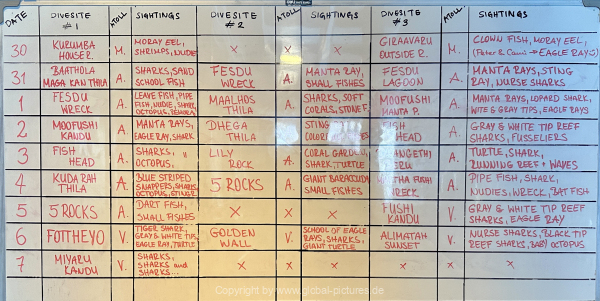 DATE DIVESITE # 1 ATOLL SIGHTINGS DIVESITE # 2 ATOLL SIGHTINGS DIVESITE # 3 ATOLL SIGHTINGS
30 KURUMBA HOUSE R. M. MORAY EEL, SHRIMPS, NUDIE X X GIRAAVARU OUTSIDE R. M. CLOWN FISH, MORAY EEL, → EAGLE RAYS)
31 BAATHOLA MAGA KAN THILA A. SHARKS, SAND SCHOOL FISH FESDU WRECK A. MANTA RAY, SMALL FISHES FESDU LAGOON A. MANTA RAYS, STING RAY, NURSE SHARKS
1 FESDU WRECK A. LEAVE FISH, PIPE FISH, NUDIE, SHARK OCTOPUS, REMORA MAALHOS THILA A. SHARKS, SOFT CORALS, STONE F. MOOFUSHI MANTA P. A. MANTA RAYS, LOPARD SHARK, WITE & GRAY TIPS, EAGLE RAYS
2 MOOFUSHI KANDU A. MANTA RAYS, EAGLE RAY, SHARK DHEGA THILA A. FISH HEAD A. GRAY & WHITE TIP REEF SHARKS, FUSSELIERS
3 FISH HEAD A. SHARKS, " OCTOPUS, LILY ROCK A. CORAL GARDEN, SHARK, TURTLE A. TURTLE, SHARK, RUNNING REEF + WAVES
4 KUDA RAH THILA A. BLUE STRIPED SNAPPERS, SHARKS, OCTOPUS, 5 ROCKS A. GIANT BARACCUDA SMALL FISHES A. PIPE FISH, SHARK, NUDIES, WRECK, BAT FISH
5 5 ROCKS A. DART FISH, SMALL FISHES X X FUSHI KANDU V. GRAY & WHITE TIP REEF SHARKS, EAGLE RAY
6 FOTTHEYO V. TIGER SHARK, GRAY & WHITE TIPS, EAGLE RAY, TURTLE GOLDEN WALL V. SCHOOL OF EAGLE RAYS, SHARKS, GIANT TURTLE ALIMATAH SUNSET V. NURSE SHARKS, BLACK TIP REEF SHARKS, BABY OCTOPUS
7 MIYARU KANDU V. SHARKS, SHARKS and SHARKS... X X X X X X
Copyright by www.global-pictures.de